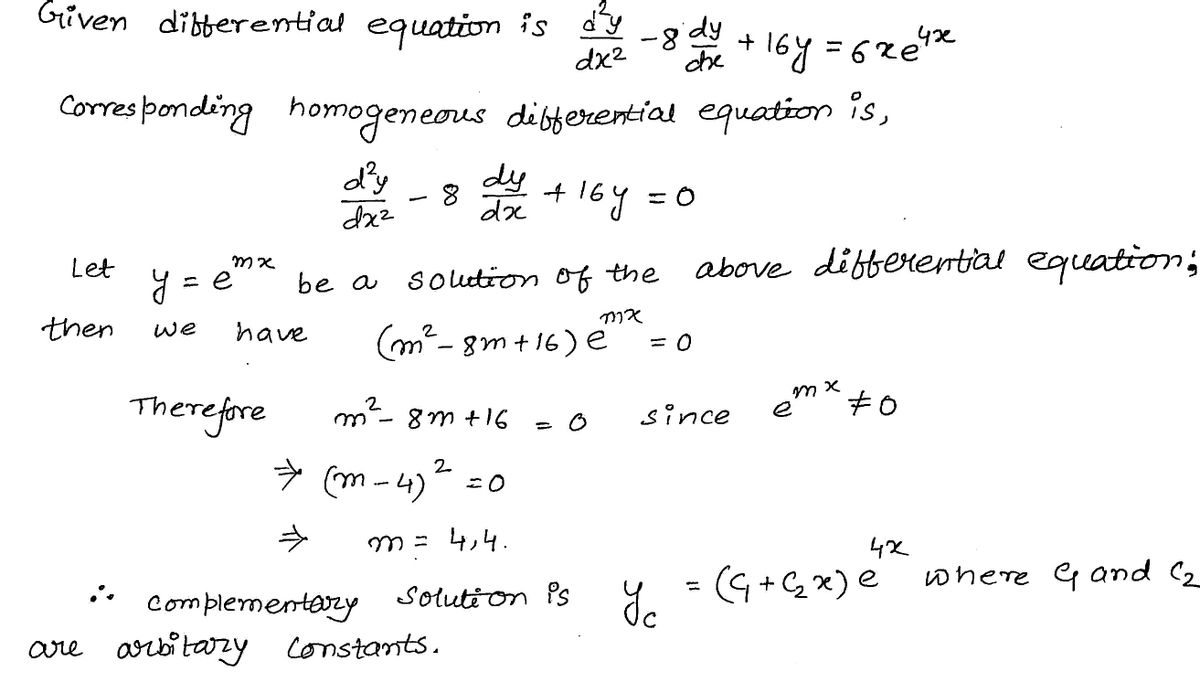 Given differential equation is d²y/dx² - 8 dy/dx + 16y = 6xe^4x
Corresponding homogeneous differential equation is,
d²y/dx² - 8 dy/dx + 16y = 0
Let y = e^mx be a solution of the above differential equation;
then we have (m² - 8m + 16) e^mx = 0
Therefore m² - 8m + 16 = 0 since e^mx ≠ 0
⇒ (m - 4)² = 0
⇒ m = 4,4.
∴ complementary solution is y_c = (C₁ + C₂x) e^4x where C₁ and C₂
are arbitary constants.